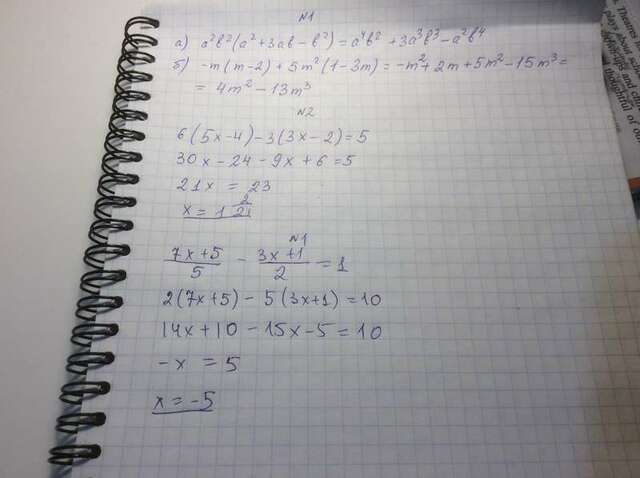 №1
а) a²b²(a²+3ab-b²)=a⁴b²+3a³b³-a²b⁴
б) -m(m-2)+5m²(1-3m)=-m²+2m+5m²-15m³=
=4m²-13m³
№2
6(5x-4)-3(3x-2)=5
30x-24-9x+6=5
21x=23
x=1 2/21
№1
(7x+5)/5 - (3x+1)/2 = 1
2(7x+5)-5(3x+1)=10
14x+10-15x-5=10
-x=5
x=-5